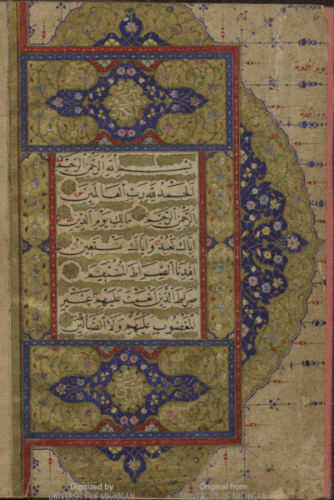 بسم الله الرحمن الرحيم
الحمد لله رب العالمين
الرحمن الرحيم مالك يوم الدين
اياك نعبد واياك نستعين
اهدنا الصراط المستقيم
صراط الذين انعمت عليهم غير
المغضوب عليهم ولا الضالين
Digitized by
UNIVERSITY OF MICHIGAN
Original from
UNIVERSITY OF MICHIGAN